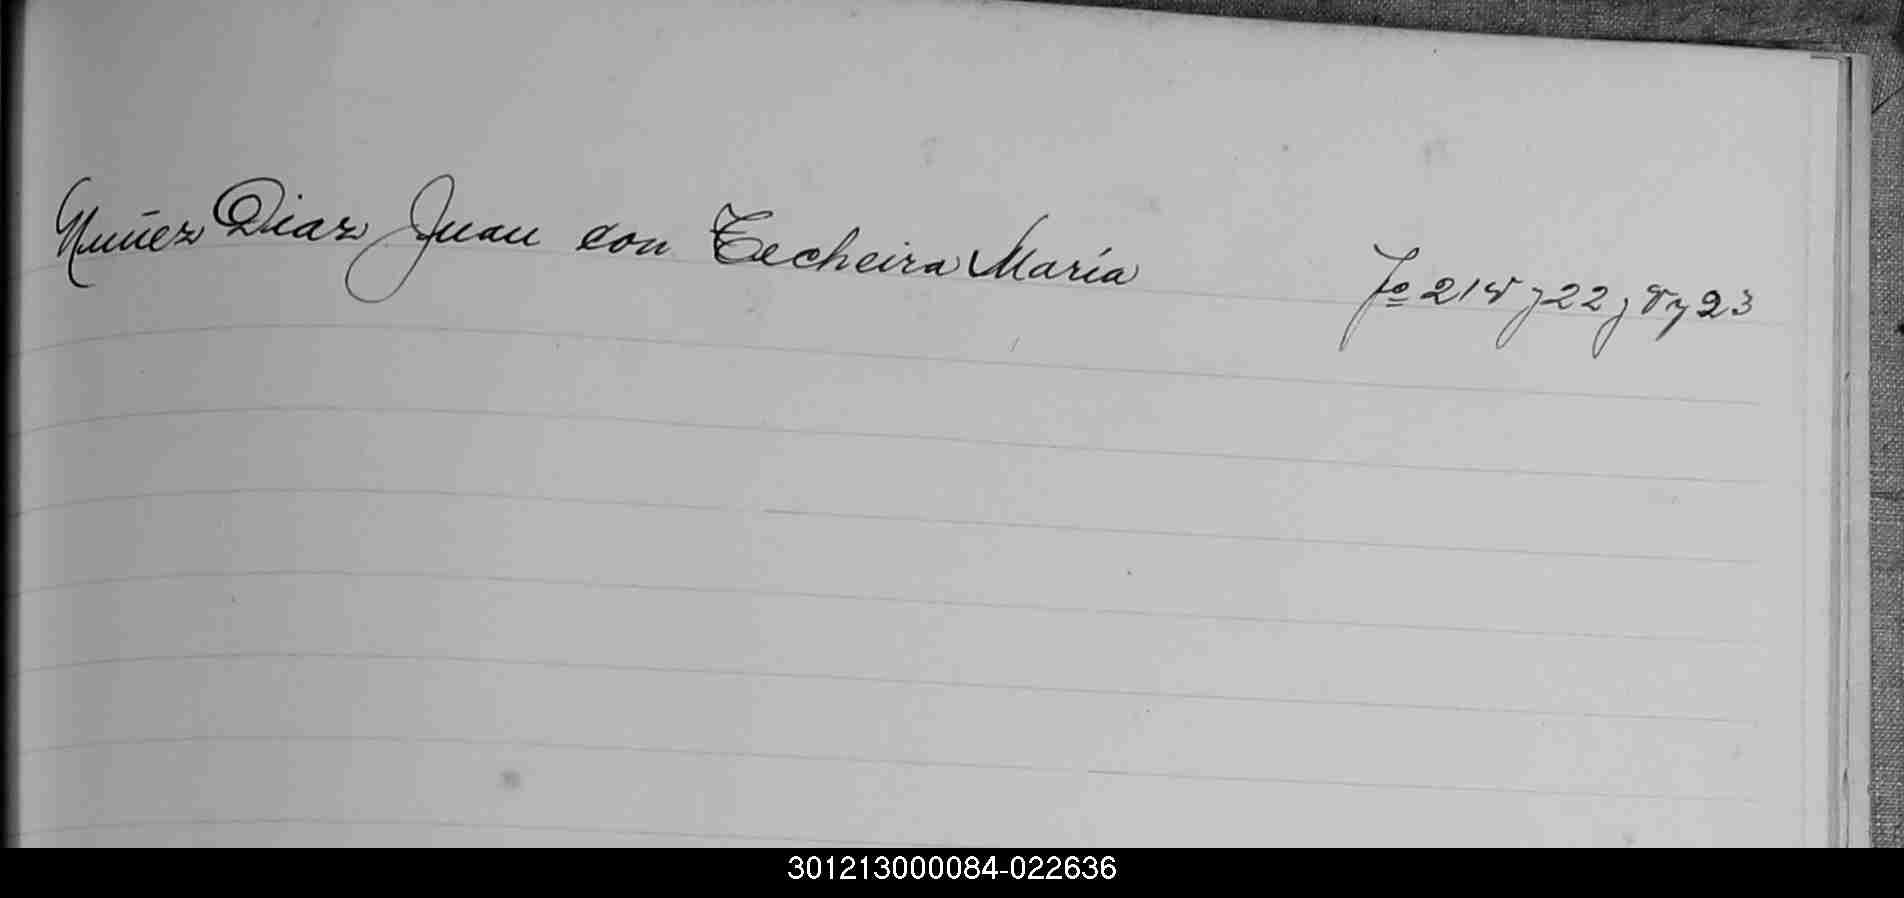 Nuñez Diaz Juan con Techeira María Fo 21v y 22 y v y 23
301213000084-022636